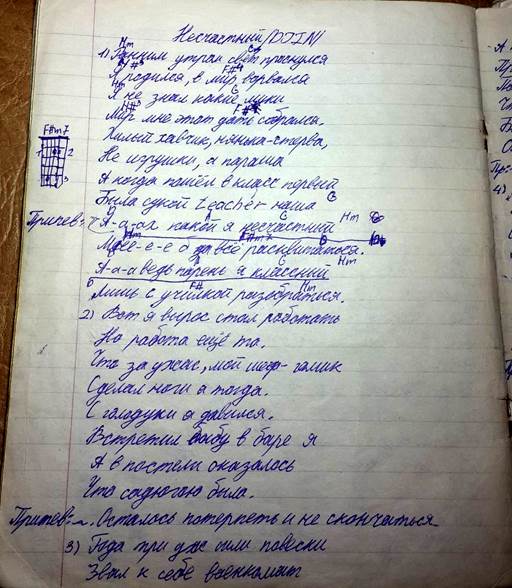 Несчастный /DJIN/
Hm G
1) Ранним утром свет проснулся
F#
Я родился, в мир ворвался
Hm G
Я не знал какие муки
F#
Мир мне этот дать собрался.
F#m7
Хилый хавчик, нянька-стерва,
1 2
Не игрушки, а параша
3
А когда пошёл в класс первый
G
Была сукой teacher наша
A G Hm
Припев: А-а-ах какой я несчастный
Мне-е-е-е за всё расквитаться.
G Hm
А-а-а ведь парень я классный
F# Hm
Лишь с училкой разобраться.
2) Вот я вырос стал работать
Но работа ещё та.
Что за ужас, мой шеф- гомик
Сделал ноги я тогда.
С голодухи я давился.
Встретил бабу в баре я
А в постели оказалось
Что садюгою была.
Припев: ~. Осталось потерпеть и не скончаться
3) Года при
Звал к себе военкомат